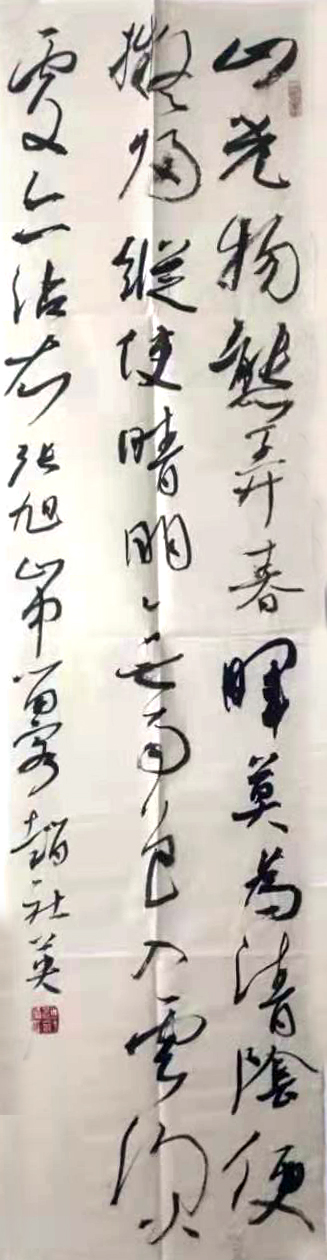 山光物態弄春暉莫為清陰便
擬歸縱使晴明無雨色入雲深
處亦沾衣張旭山中留客趙社英